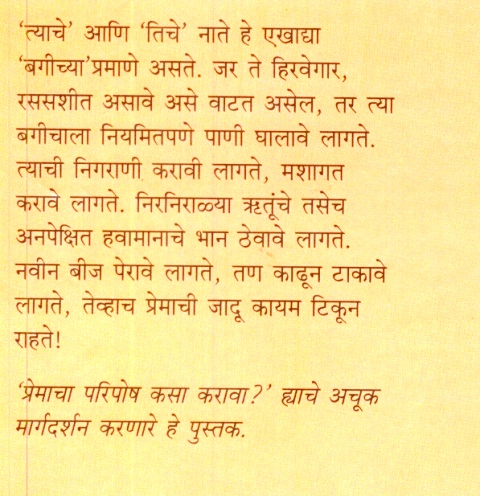 ‘त्याचे’ आणि ‘तिचे’ नाते हे एखाद्या
‘बगीच्या’प्रमाणे असते. जर ते हिरवेगार,
रससशीत असावे असे वाटत असेल, तर त्या
बगीचाला नियमितपणे पाणी घालावे लागते.
त्याची निगराणी करावी लागते, मशागत
करावे लागते. निरनिराळ्या ऋतूंचे तसेच
अनपेक्षित हवामानाचे भान ठेवावे लागते.
नवीन बीज पेरावे लागते, तण काढून टाकावे
लागते, तेव्हाच प्रेमाची जादू कायम टिकून
राहते!
‘प्रेमाचा परिपोष कसा करावा?’ ह्याचे अचूक
मार्गदर्शन करणारे हे पुस्तक.